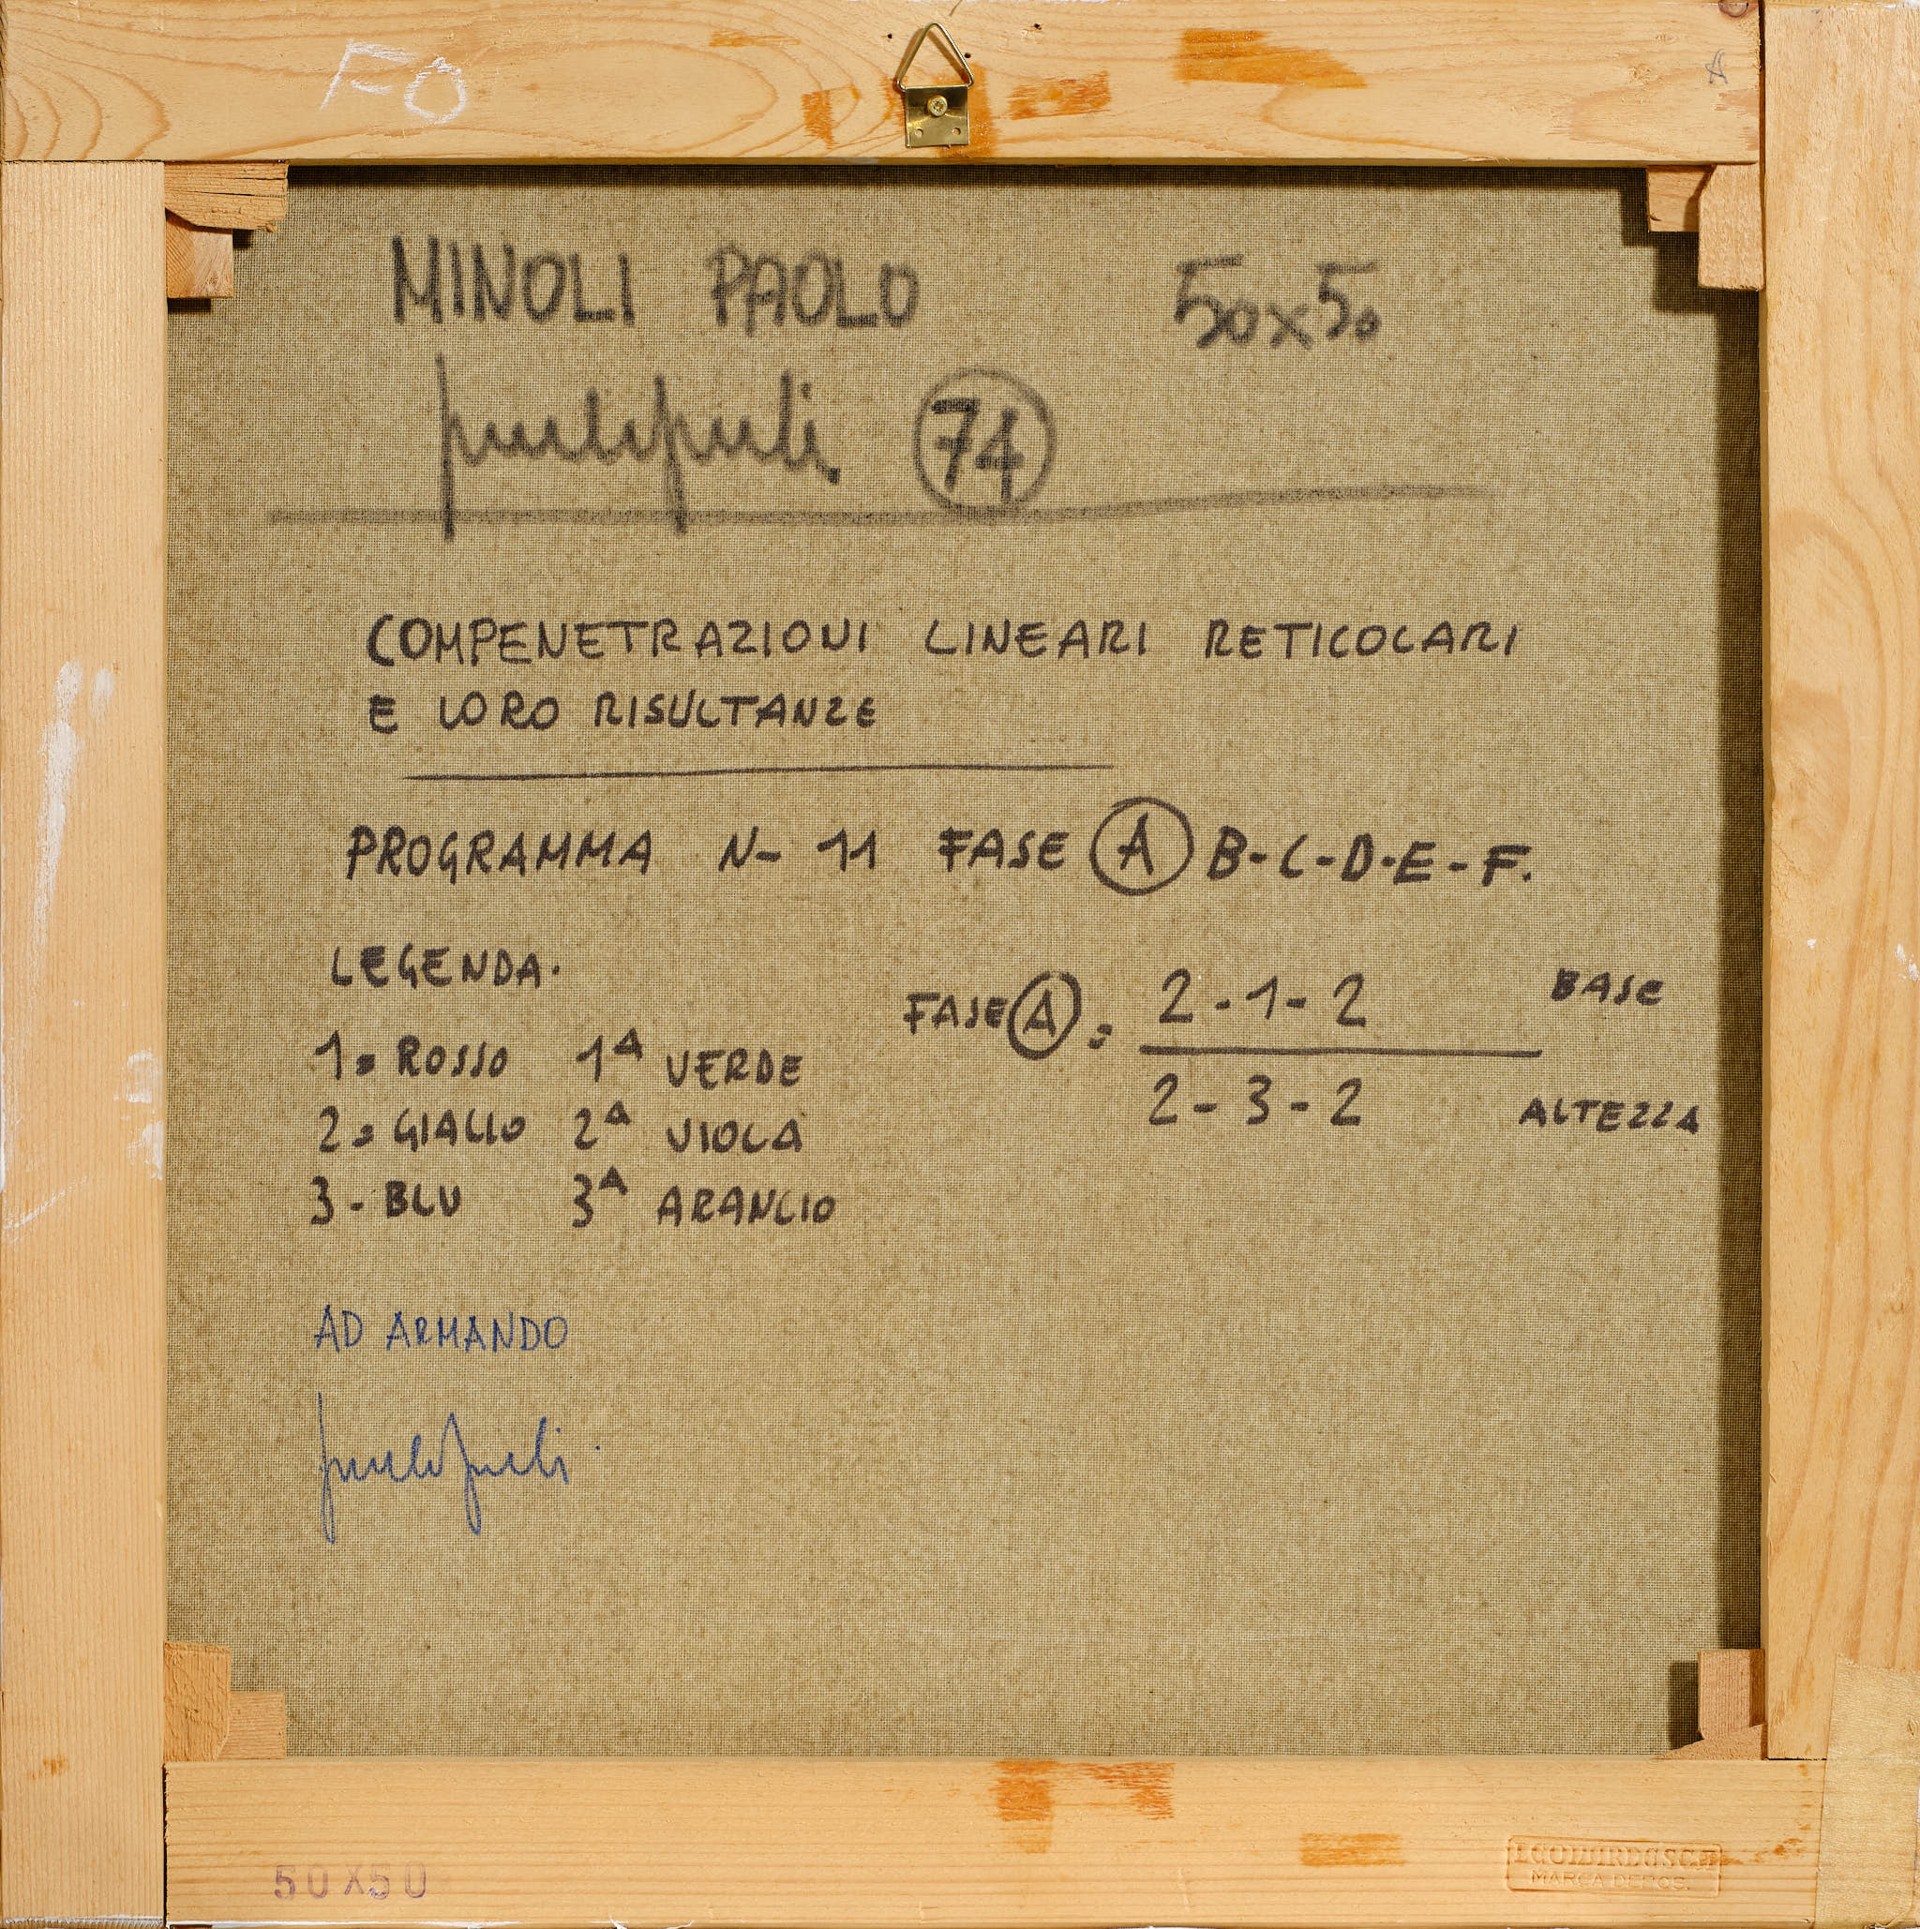 FO
MINOLI PAOLO 50x50
74
COMPENETRAZIONI LINEARI RETICOLARI
E LORO RISULTANZE
PROGRAMMA N- 11 FASE A B-C-D-E-F.
LEGENDA.
FASE A = 2-1-2 BASE
2-3-2 ALTEZZA
1= ROSSO 1A VERDE
2= GIALLO 2A VIOLA
3- BLU 3A ARANCIO
AD ARMANDO
50X50
MARCA DEPOS.